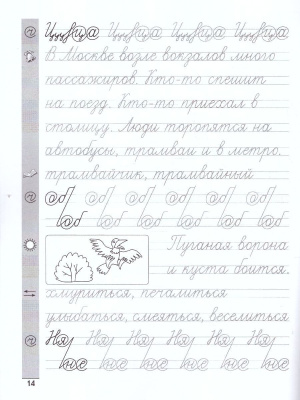 Ццуfца Ццуfца Ццуfца Ццуfца
В Москве возле вокзалов много
пассажиров. Кто-то спешит
на поезд. Кто-то приехал в
столицу. Люди торопятся на
автобусы, трамваи и в метро.
трамвайчик, трамвайный
об об об об об об
об об об об об об
Пуганая ворона
и куста боится.
хмуриться, печалиться
улыбаться, смеяться, веселиться
Ня Ня Ня Ня Ня Ня
не не не не не не
14